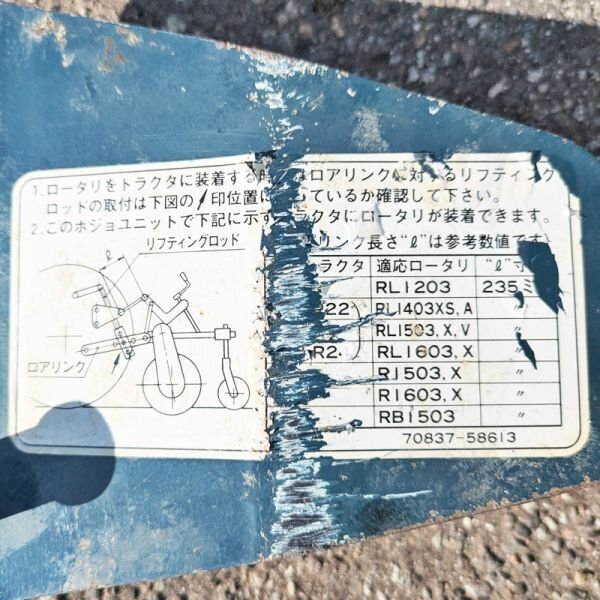 1. ロータリをトラクタに装着する時 はロアリンクに対するリフティング
ロッドの取付は下図の 印位置に っているか確認して下さい。
2. このホジョユニットで下記に示す ラクタにロータリが装着できます。
リフティングロッド
リンク長さ"ℓ"は参考数値です
ℓ
ロアリンク
ラクタ 適応ロータリ "ℓ"寸
RL1203 235ミ
22 RL1403XS,A 〃
RL1503,X,V 〃
R2 RL1603,X 〃
R1503,X 〃
R1603,X 〃
RB1503 〃
70837-58613